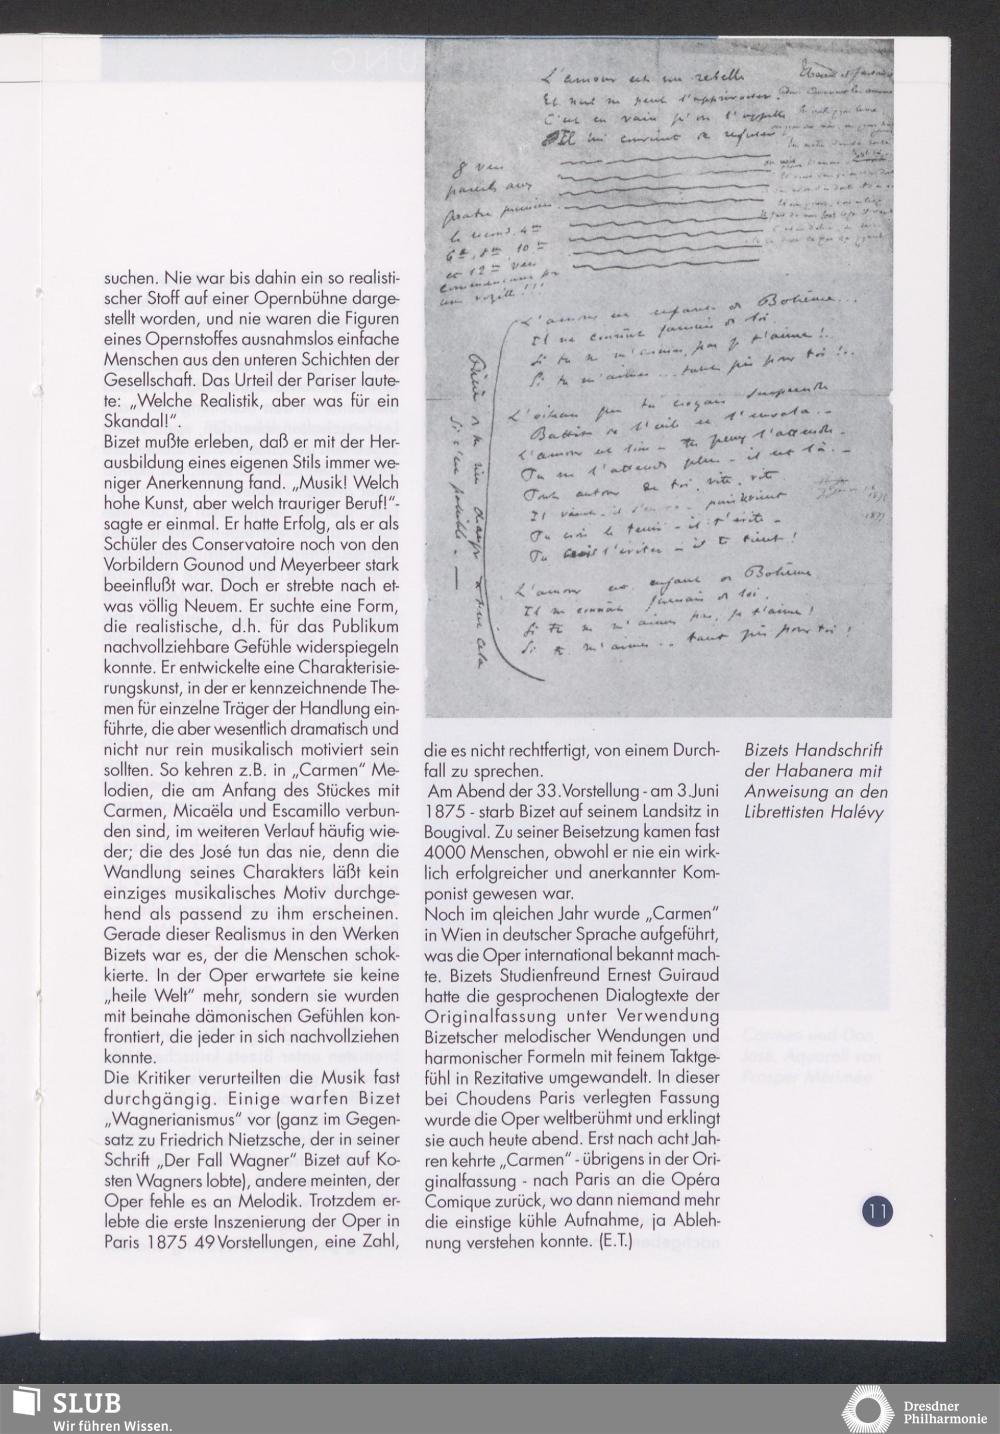 L'amour est un rebelle
Et nul ne peut l'apprivoiser.
C'est en vain qu'on l'appelle
Il lui convient de refuser
8 vers
pareils aux
quatre premiers
le second, 4me
6e, 8me 10me
et 12me vers
L'amour est enfant de Bohême...
Il ne connut jamais de loi.
Si tu ne m'aimes pas je t'aime!..
Si tu m'aimes... tant pis pour toi!..
L'oiseau que tu croyais surprendre
Battit de l'aile et s'envola..
L'amour est loin – tu peux l'attendre.
Tu ne l'attends plus – il est là..
Tout autour de toi, vite, vite
Il vient, il s'en va – puis revient
Tu crois le tenir – il t'évite –
Tu crois l'éviter – il te tient!
L'amour est enfant de Bohême
Il ne connut jamais de loi.
Si tu ne m'aimes pas, je t'aime!
Si tu m'aimes.. tant pis pour toi!
suchen. Nie war bis dahin ein so realisti-
scher Stoff auf einer Opernbühne darge-
stellt worden, und nie waren die Figuren
eines Opernstoffes ausnahmslos einfache
Menschen aus den unteren Schichten der
Gesellschaft. Das Urteil der Pariser laute-
te: „Welche Realistik, aber was für ein
Skandal!“.
Bizet mußte erleben, daß er mit der Her-
ausbildung eines eigenen Stils immer we-
niger Anerkennung fand. „Musik! Welch
hohe Kunst, aber welch trauriger Beruf!“-
sagte er einmal. Er hatte Erfolg, als er als
Schüler des Conservatoire noch von den
Vorbildern Gounod und Meyerbeer stark
beeinflußt war. Doch er strebte nach et-
was völlig Neuem. Er suchte eine Form,
die realistische, d.h. für das Publikum
nachvollziehbare Gefühle widerspiegeln
konnte. Er entwickelte eine Charakterisie-
rungskunst, in der er kennzeichnende The-
men für einzelne Träger der Handlung ein-
führte, die aber wesentlich dramatisch und
nicht nur rein musikalisch motiviert sein
sollten. So kehren z.B. in „Carmen“ Me-
lodien, die am Anfang des Stückes mit
Carmen, Micaëla und Escamillo verbun-
den sind, im weiteren Verlauf häufig wie-
der; die des José tun das nie, denn die
Wandlung seines Charakters läßt kein
einziges musikalisches Motiv durchge-
hend als passend zu ihm erscheinen.
Gerade dieser Realismus in den Werken
Bizets war es, der die Menschen schok-
kierte. In der Oper erwartete sie keine
„heile Welt“ mehr, sondern sie wurden
mit beinahe dämonischen Gefühlen kon-
frontiert, die jeder in sich nachvollziehen
konnte.
Die Kritiker verurteilten die Musik fast
durchgängig. Einige warfen Bizet
„Wagnerianismus“ vor (ganz im Gegen-
satz zu Friedrich Nietzsche, der in seiner
Schrift „Der Fall Wagner“ Bizet auf Ko-
sten Wagners lobte), andere meinten, der
Oper fehle es an Melodik. Trotzdem er-
lebte die erste Inszenierung der Oper in
Paris 1875 49 Vorstellungen, eine Zahl,
die es nicht rechtfertigt, von einem Durch-
fall zu sprechen.
Am Abend der 33.Vorstellung - am 3.Juni
1875 - starb Bizet auf seinem Landsitz in
Bougival. Zu seiner Beisetzung kamen fast
4000 Menschen, obwohl er nie ein wirk-
lich erfolgreicher und anerkannter Kom-
ponist gewesen war.
Noch im gleichen Jahr wurde „Carmen“
in Wien in deutscher Sprache aufgeführt,
was die Oper international bekannt mach-
te. Bizets Studienfreund Ernest Guiraud
hatte die gesprochenen Dialogtexte der
Originalfassung unter Verwendung
Bizetscher melodischer Wendungen und
harmonischer Formeln mit feinem Taktge-
fühl in Rezitative umgewandelt. In dieser
bei Choudens Paris verlegten Fassung
wurde die Oper weltberühmt und erklingt
sie auch heute abend. Erst nach acht Jah-
ren kehrte „Carmen“ - übrigens in der Ori-
ginalfassung - nach Paris an die Opéra
Comique zurück, wo dann niemand mehr
die einstige kühle Aufnahme, ja Ableh-
nung verstehen konnte. (E.T.)
Bizets Handschrift
der Habanera mit
Anweisung an den
Librettisten Halévy
11
SLUB
Wir führen Wissen.
Dresdner
Philharmonie